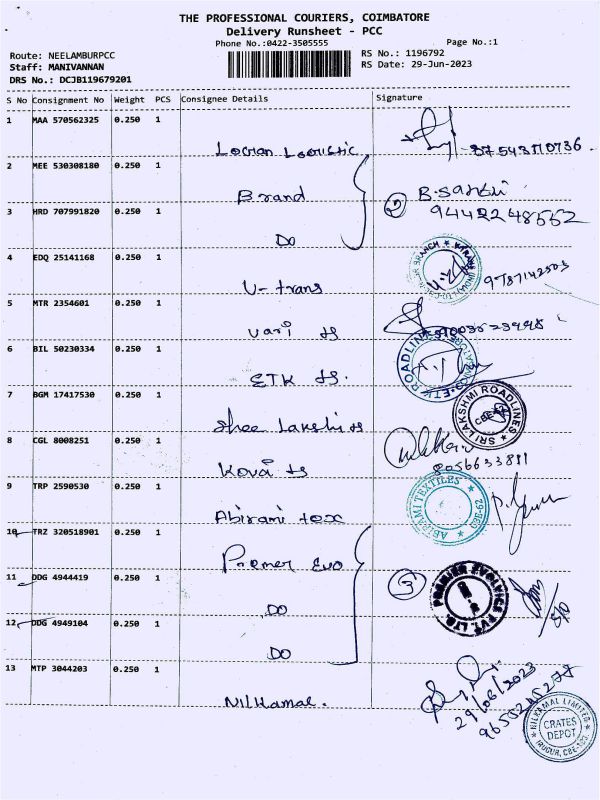 THE PROFESSIONAL COURIERS, COIMBATORE
Delivery Runsheet - PCC
Phone No.:0422-3505555
Page No.:1
Route: NEELAMBURPCC
RS No.: 1196792
Staff: MANIVANNAN
RS Date: 29-Jun-2023
DRS No.: DCJB119679201
S No Consignment No Weight PCS Consignee Details Signature
1 MAA 570562325 0.250 1
2 MEE 530308180 0.250 1 Brand
B.Sakthi
9442248552
3 HRD 707991820 0.250 1 DO
4 EDQ 25141168 0.250 1 V-trans
9787142503
5 MTR 2354601 0.250 1 Vari ts
6 BIL 50230334 0.250 1 ETK ts.
ETK ROADLINES
7 BGM 17417530 0.250 1 Shree Lakshi ts
SRI LAKSHMI ROADLINES
CBE
8 CGL 8008251 0.250 1 Kovai ts
8056633811
9 TRP 2590530 0.250 1 Abirami tex
ABIRAMI TEXTILES
10 TRZ 320518901 0.250 1 Premer Evo
11 DDG 4944419 0.250 1 DO
3
PREMIER EVOLVICS PVT. LTD.
12 DDG 4949104 0.250 1 DO
13 MTP 3044203 0.250 1 Nilkamal.
29/06/2023
NILKAMAL LIMITED
CRATES
DEPOT
IRUGUR, CBE-103.